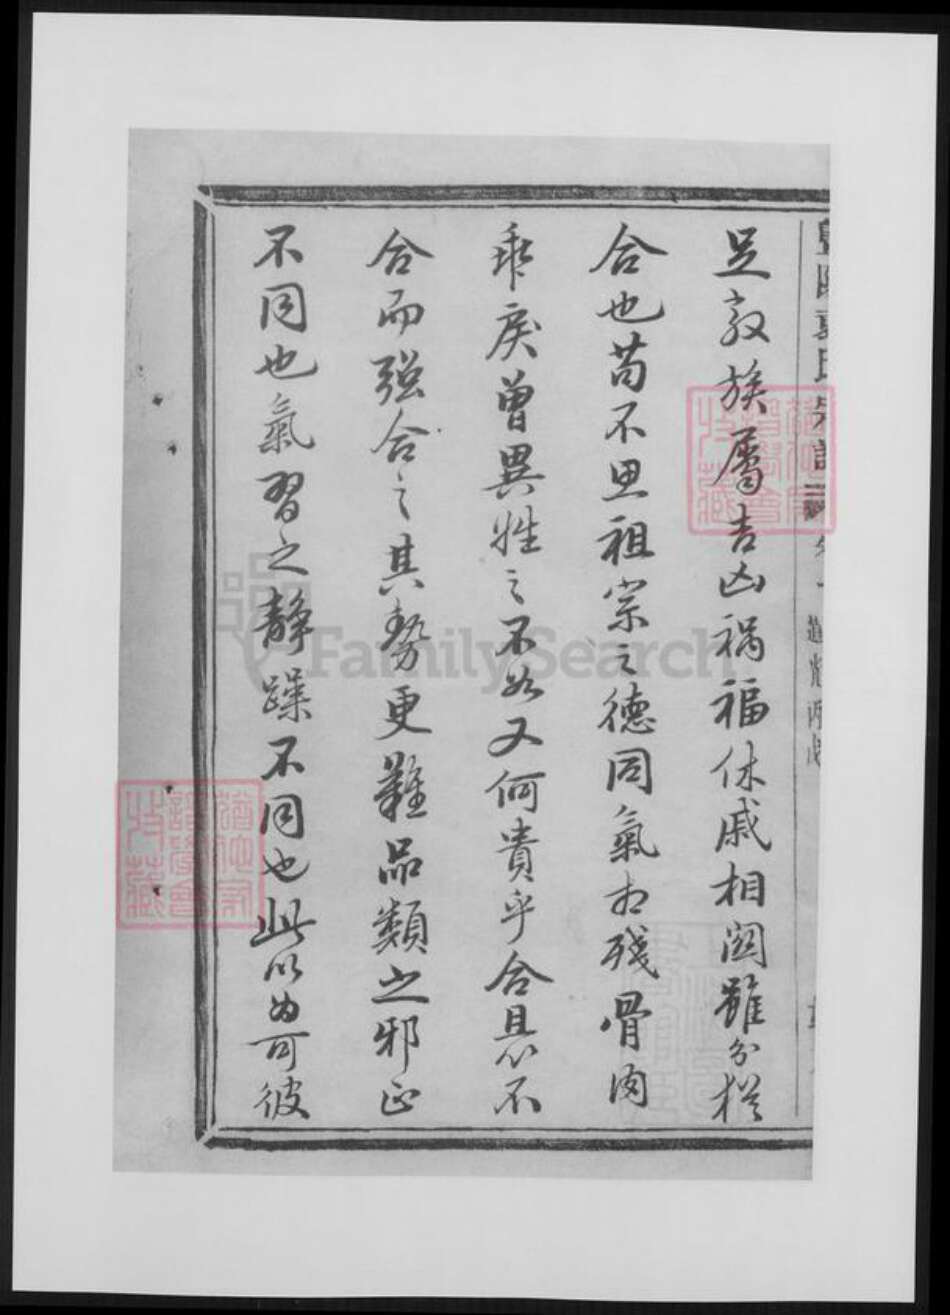 足敦族屬吉凶禍福休戚相關雖分猶
合也苟不思祖宗之德同氣相殘骨肉
乖戾曾異姓之不如又何貴乎合具不
合而强合之其勢更難品類之邪正
不同也氣習之靜躁不同也此以為可彼
FamilySearch